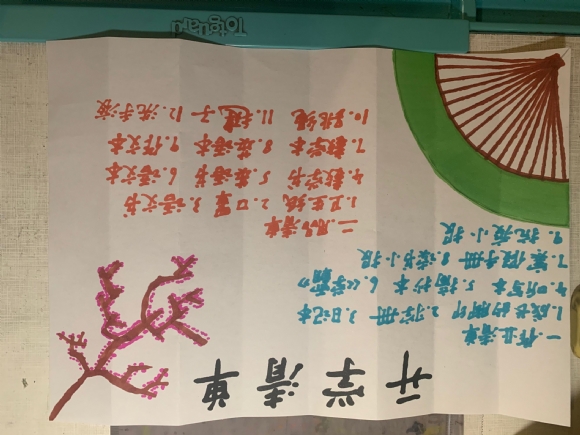 开学清单
一.作业清单
1.成长的脚印 2. 3.日记本
4.听写本 5.摘抄本 6.《字霸》
7.寒假手册 8.读书小报
9.抗疫小报
二.用品清单
1.卫生纸 2.口罩 3.语文书
4.数学书 5.英语书 6.语文本
7.数学本 8.英语本 9.作文本
10.跳绳 11.毽子 12.洗手液